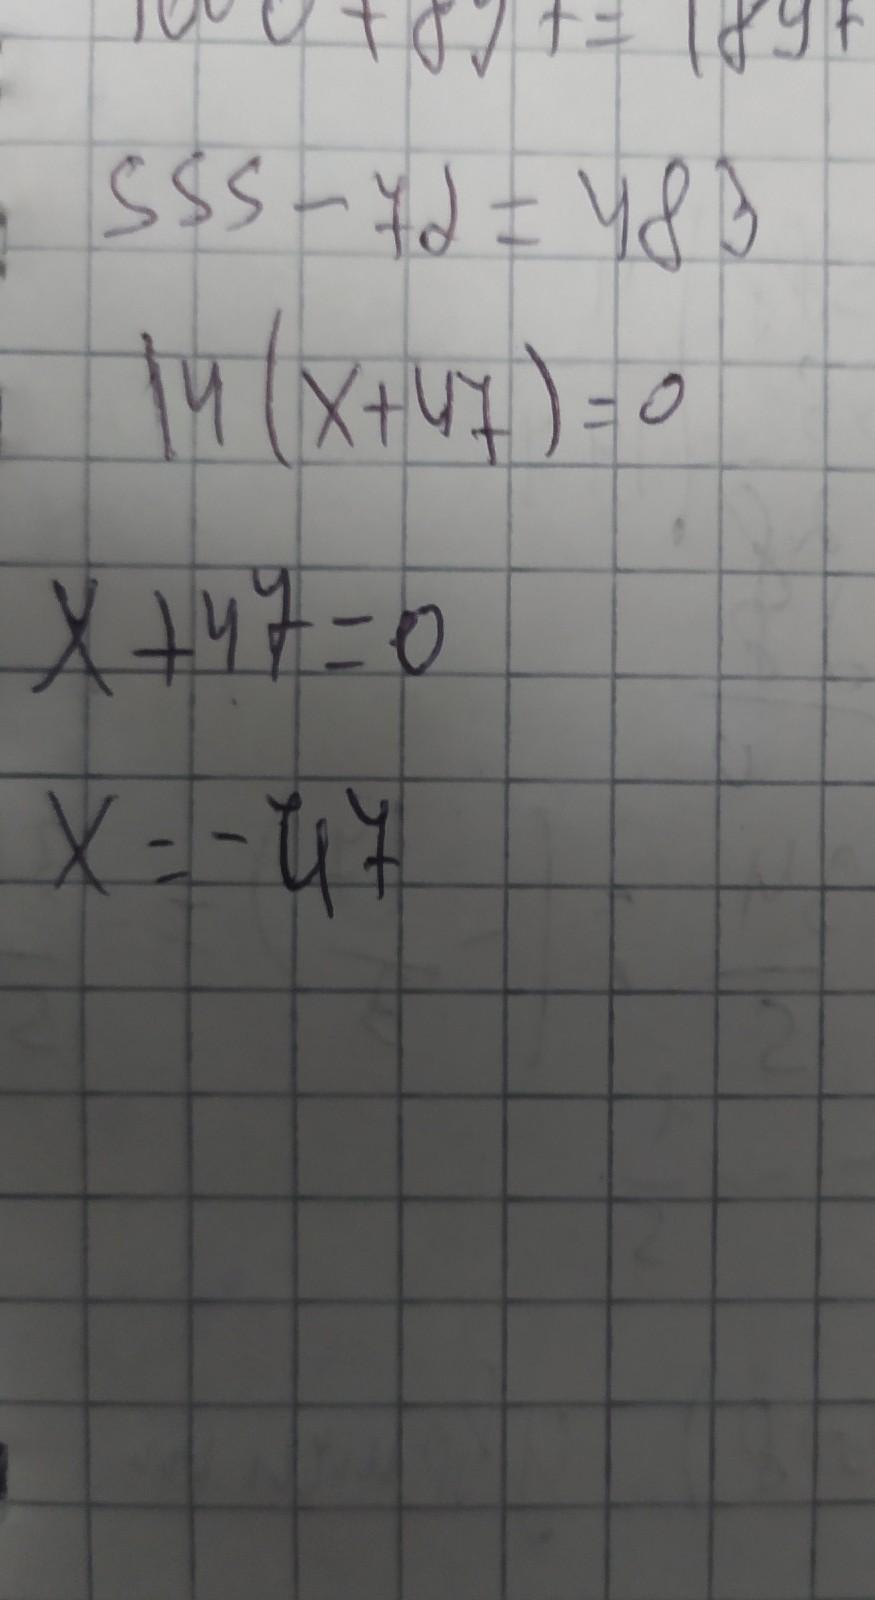 1000 + 897 = 1897
555 - 72 = 483
14 (x+47) = 0
x + 47 = 0
x = - 47